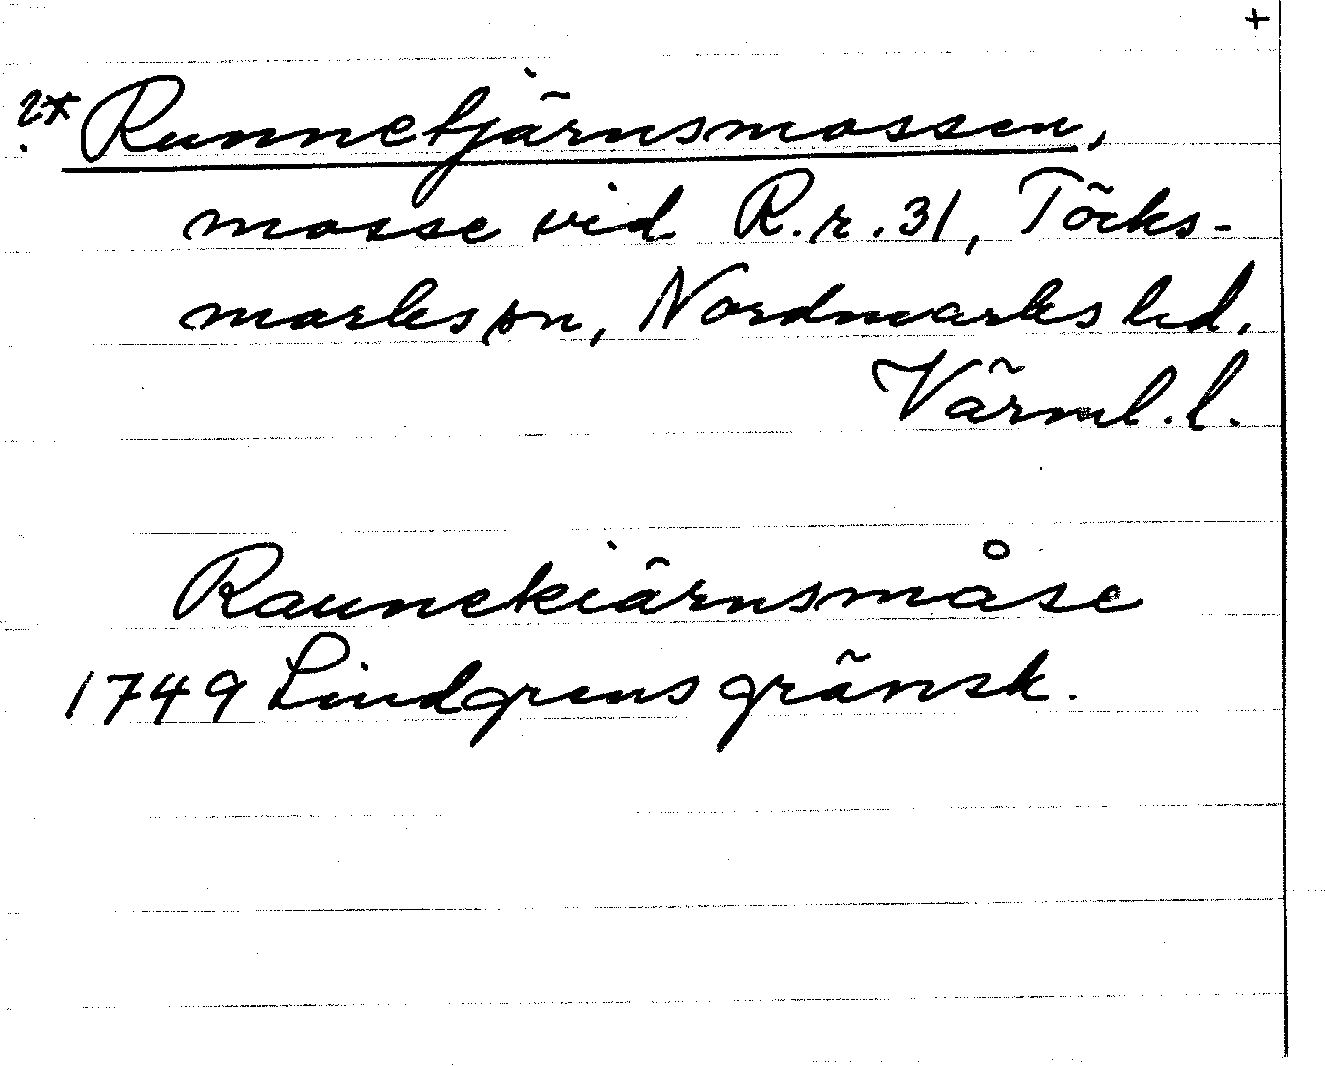 +
?* Runnetjärnsmossen,
mosse vid R.r. 31, Töcks-
marks sn, Nordmarks hd,
Värml. l.
Raunekiärnsmåse
1749 Lindgrens gränsk.